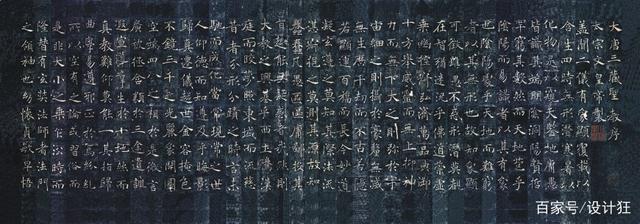 大唐三藏聖教序
太宗文皇帝製
蓋聞二儀有像顯覆載以
含生四時無形潛寒暑以
化物是以窺天鑒地庸愚
皆識其端明陰洞陽賢哲
罕窮其數然而天地苞乎
陰陽而易識者以其有像
也陰陽處乎天地而難窮
者以其無形也故知像顯
可徵雖愚不惑形潛莫覩
在智猶迷況乎佛道崇虛
乘幽控寂弘濟萬品典御
十方舉威靈而無上抑神
力而無下大之則彌於宇
宙細之則攝於豪釐無滅
無生歷千劫而不古若隱
若顯運百福而長今妙道
凝玄遵之莫知其際法流
湛寂挹之莫測其源故知
蠢蠢凡愚區區庸鄙投其
旨趣能無疑惑者哉然則
大教之興基乎西土騰漢
庭而皎夢照東域而流慈
昔者分形分跡之時言未
馳而成化當常現常之世
人仰德而知遵及乎晦影
歸真遷儀越世金容掩色
不鏡三千之光麗象開圖
空端四八之相於是微言
廣被拯含類於三途遺訓
遐宣導群生於十地然而
真教難仰莫能一其指歸
曲學易遵邪正於焉紛糾
所以空有之論或習俗而
是非大小之乘乍沿時而
隆替有玄奘法師者法門
之領袖也幼懷貞敏早悟
百家号/设计狂